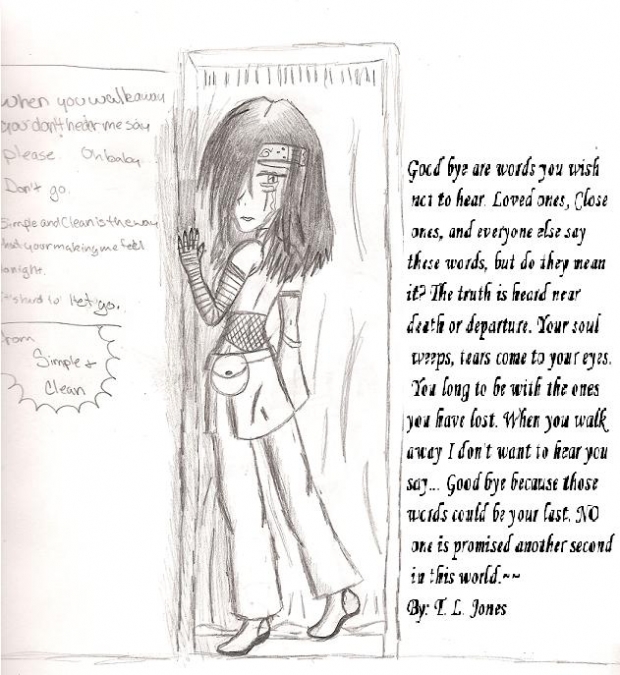 When you walk away
you don't hear me say
please. Oh baby
Don't go.
Simple and Clean is the way
that your making me feel
tonight.
it's hard to let go.
from
Simple &
Clean
Good bye are words you wish
not to hear. Loved ones, Close
ones, and everyone else say
these words, but do they mean
it? The truth is heard near
death or departure. Your soul
weeps, tears come to your eyes.
You long to be with the ones
you have lost. When you walk
away I don't want to hear you
say... Good bye because those
words could be your last. NO
one is promised another second
in this world.~~
By: T. L. Jones